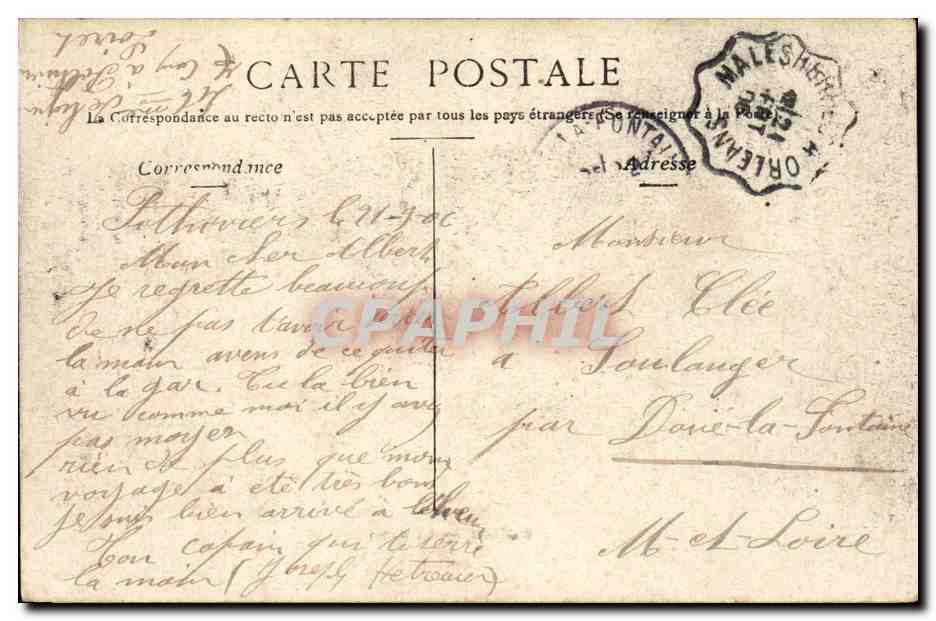 CARTE POSTALE
La Correspondance au recto n'est pas acceptée par tous les pays étrangers (Se renseigner à la Poste)
Correspondance
Adresse
MALESHERBES
ORLEANS
LA-FONTAI
CPAPHIL
Loiret
Pithiviers le 21-3-06
Mon Cher Albert
Je regrette beaucoup
de ne pas t'avoir
la main avens de ce quiter
à la gar. Tu la bien
vu comme moi il y avé
pas moyen
rien de plus que mon
voyage à été très bon
je suis bien arrivé à
Ton copain qui te serre
la main (Joseph
Monsieur
Albert Clée
a Soulanger
par Doué-la-Fontaine
M-et-Loire